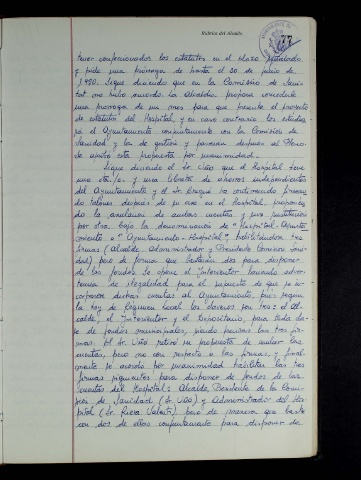 Rúbrica del Alcalde,
77
tener confeccionados los estatutos en el plazo señalado
y pide una prórroga de hasta el 30 de junio de
1.980. Sigue diciendo que en la Comisión de Sani-
dad no hubo acuerdo. La Alcaldía propone concederle
una prórroga de un mes para que presente el proyecto
de estatutos del Hospital, y en caso contrario los estudia-
rá el Ayuntamiento conjuntamente con la Comisión de
Sanidad y la de gestión y pasarían después al Pleno.
Se aprobó esta propuesta por unanimidad.-
Sigue diciendo el Sr. que el Hospital tiene
una cta. c. y una libreta de ahorros independientes
del Ayuntamiento y el Sr. ha continuado firman-
do talones después de su cese en el Hospital, proponien-
do la anulación de ambas cuentas y una sustitución
por otra, bajo la denominación de "Hospital-Ayunta-
miento o "Ayuntamiento-Hospital",
firmas (Alcalde, Administrador y Presidente Comisión Sani-
dad) pero de forma que bastarán dos para disponer
de los fondos. Se opone el Interventor haciendo adver-
tencia de ilegalidad para el supuesto de que se in-
corporen dichas cuentas al Ayuntamiento, pues según
la Ley de Régimen Local los claveros son tres: el Al-
calde, el Interventor y el Depositario, para toda cla-
se de fondos municipales, siendo precisas las tres fir-
mas. El Sr. retiró su propuesta de anular las
cuentas, pero no con respecto a las firmas, y final-
mente se acordó por unanimidad habilitar las tres
firmas siguientes para disponer de fondos de las
cuentas del Hospital: Alcalde, Presidente de la Comi-
sión de Sanidad (Sr. ) y Administrador del Hos-
pital (Sr. Riera ) pero de manera que baste
con dos de ellas conjuntamente para disponer de